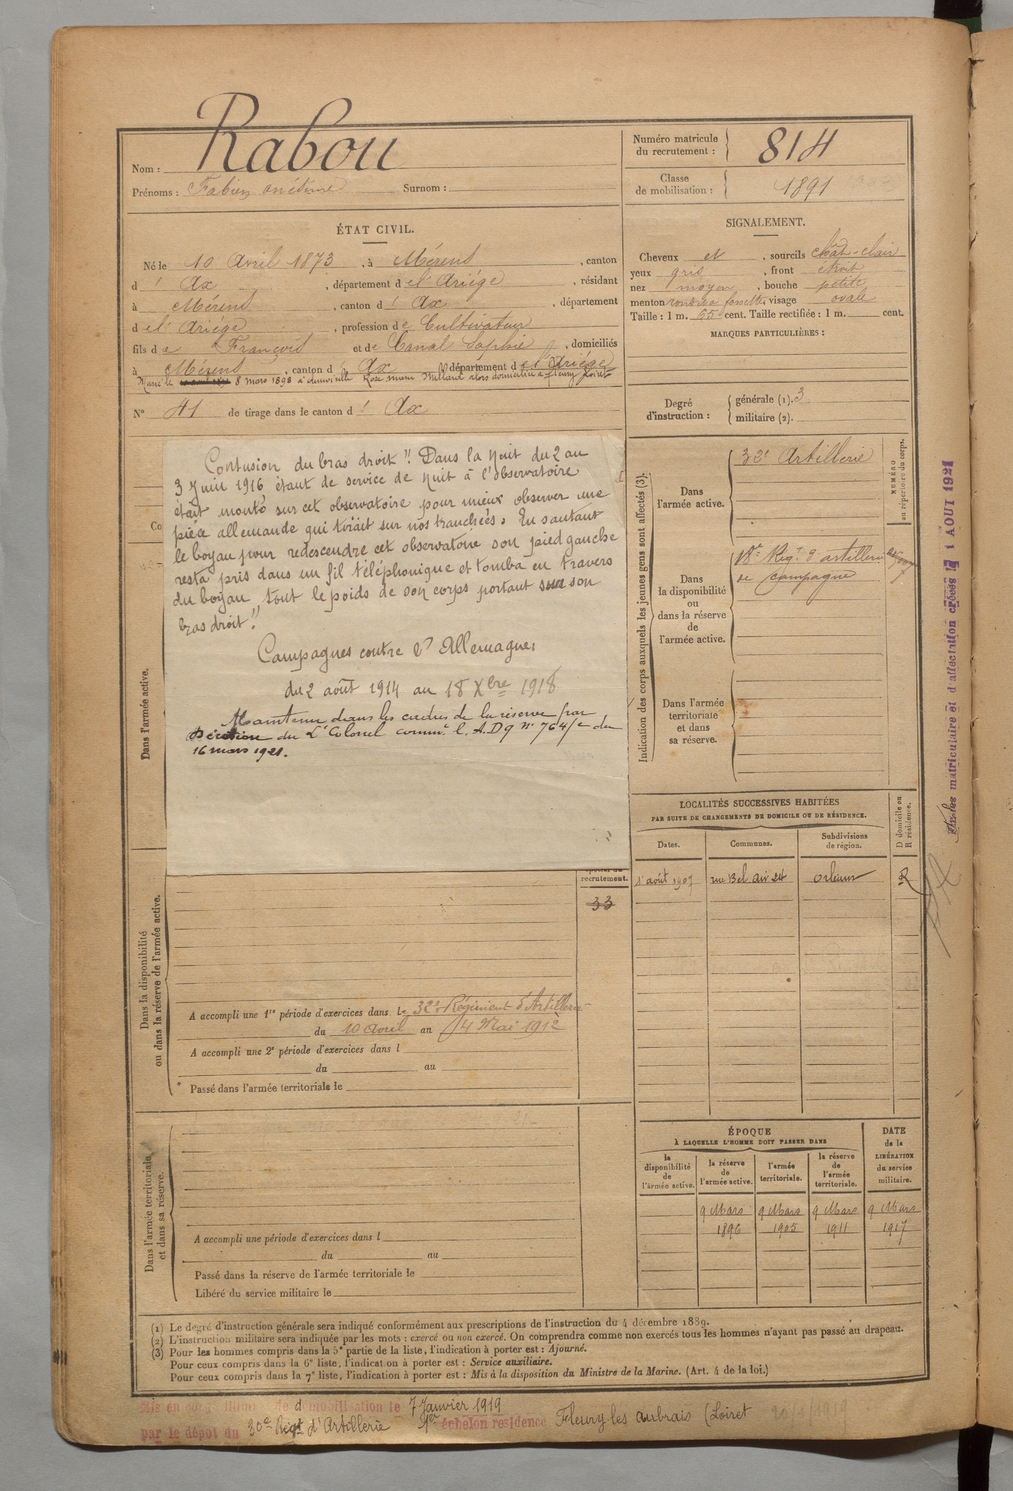 Nom : Rabou
Prénoms : Fabien Surnom :
Numéro matricule du recrutement : 814
Classe de mobilisation : 1891
ÉTAT CIVIL.
Né le 10 Avril 1873, à Mérens, canton
d' Ax, département de l'Ariége, résidant
à Mérens, canton d' Ax, département
de l'Ariége, profession de Cultivateur
fils de François et de Canal Sophie, domiciliés
à Mérens, canton d' Ax département de l'Ariége
Marié le 8 mars 1898 à domiciliée à Fleury Loiret
N° 41 de tirage dans le canton d' Ax
SIGNALEMENT.
Cheveux et, sourcils chât-clair
yeux gris, front étroit
nez moyen, bouche petite
menton rond fossette, visage ovale
Taille : 1 m. 65 cent. Taille rectifiée : 1 m. cent.
MARQUES PARTICULIÈRES :
Degré d'instruction :
générale (1). 3
militaire (2).
Contusion du bras droit !! Dans la nuit du 2 au
3 Juin 1916 étant de service de nuit à l'observatoire
était monté sur cet observatoire pour mieux observer une
pièce allemande qui tirait sur nos tranchées. En sautant
le boyau pour redescendre cet observatoire son pied gauche
resta pris dans un fil téléphonique et tomba en travers
du boyau tout le poids de son corps portant sur son
bras droit !!
Campagnes contre l'Allemagne
du 2 août 1914 au 18 Xbre 1918
Maintenu dans les cadres de la réserve par
Décision du Lt Colonel comm. l. A.D 9 n° 764/c du
16 mars 1921.
Co
Dans l'armée active.
Indication des corps auxquels les jeunes gens sont affectés (3).
NUMÉRO au répertoire du corps.
Dans l'armée active.
32e Artillerie
Dans la disponibilité ou dans la réserve de l'armée active.
Regt d'artillerie
de campagne
Dans l'armée territoriale et dans sa réserve.
matriculaire et d'affectation 1 AOUT 1921
LOCALITÉS SUCCESSIVES HABITÉES
PAR SUITE DE CHANGEMENTS DE DOMICILE OU DE RÉSIDENCE.
Dates. Communes. Subdivisions de région. D domicile ou R résidence.
1 août 1907 rue Bel air 24 Orléans R
recrutement.
33
Dans la disponibilité
ou dans la réserve de l'armée active.
A accompli une 1re période d'exercices dans le 32e Régiment d'Artillerie
du 10 Avril au 4 Mai 1912
A accompli une 2e période d'exercices dans l
du au
Passé dans l'armée territoriale le
Dans l'armée territoriale
et dans sa réserve.
A accompli une période d'exercices dans l
du au
Passé dans la réserve de l'armée territoriale le
Libéré du service militaire le
ÉPOQUE
À LAQUELLE L'HOMME DOIT PASSER DANS
DATE de la LIBÉRATION du service militaire.
la disponibilité de l'armée active.
la réserve de l'armée active.
l'armée territoriale.
la réserve de l'armée territoriale.
9 Mars 9 Mars 9 Mars 9 Mars
1896 1905 1911 1917
(1) Le degré d'instruction générale sera indiqué conformément aux prescriptions de l'instruction du 4 décembre 1889.
(2) L'instruction militaire sera indiquée par les mots : exercé ou non exercé. On comprendra comme non exercés tous les hommes n'ayant pas passé au drapeau.
(3) Pour les hommes compris dans la 5e partie de la liste, l'indication à porter est : Ajourné.
Pour ceux compris dans la 6e liste, l'indication à porter est : Service auxiliaire.
Pour ceux compris dans la 7e liste, l'indication à porter est : Mis à la disposition du Ministre de la Marine. (Art. 4 de la loi.)
Mis en de démobilisation le 7 Janvier 1919
par le dépôt du 30e Régt d'Artillerie 1er échelon residence Fleury les aubrais (Loiret